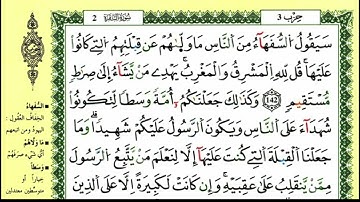 حِزْب ٣
سُورَةُ البَقَرَة ٢
سَيَقُولُ ٱلسُّفَهَآءُ مِنَ ٱلنَّاسِ مَا وَلَّىٰهُمْ عَن قِبْلَتِهِمُ ٱلَّتِى كَانُوا۟
عَلَيْهَا ۚ قُل لِّلَّهِ ٱلْمَشْرِقُ وَٱلْمَغْرِبُ ۚ يَهْدِى مَن يَشَآءُ إِلَىٰ صِرَٰطٍ
مُّسْتَقِيمٍ 142 وَكَذَٰلِكَ جَعَلْنَٰكُمْ أُمَّةً وَسَطًا لِّتَكُونُوا۟
شُهَدَآءَ عَلَى ٱلنَّاسِ وَيَكُونَ ٱلرَّسُولُ عَلَيْكُمْ شَهِيدًا ۗ وَمَا
جَعَلْنَا ٱلْقِبْلَةَ ٱلَّتِى كُنتَ عَلَيْهَآ إِلَّا لِنَعْلَمَ مَن يَتَّبِعُ ٱلرَّسُولَ
مِمَّن يَنقَلِبُ عَلَىٰ عَقِبَيْهِ ۚ وَإِن كَانَتْ لَكَبِيرَةً إِلَّا عَلَى ٱلَّذِينَ
السُّفَهَاءُ
الخِفَافُ العُقُولِ :
اليهودُ ومن اتبعهم
مَا وَلَّاهُمْ
أيُّ شيءٍ صَرَفَهُمْ
وَسَطًا
خِيارًا أو
متوسّطين معتدلين